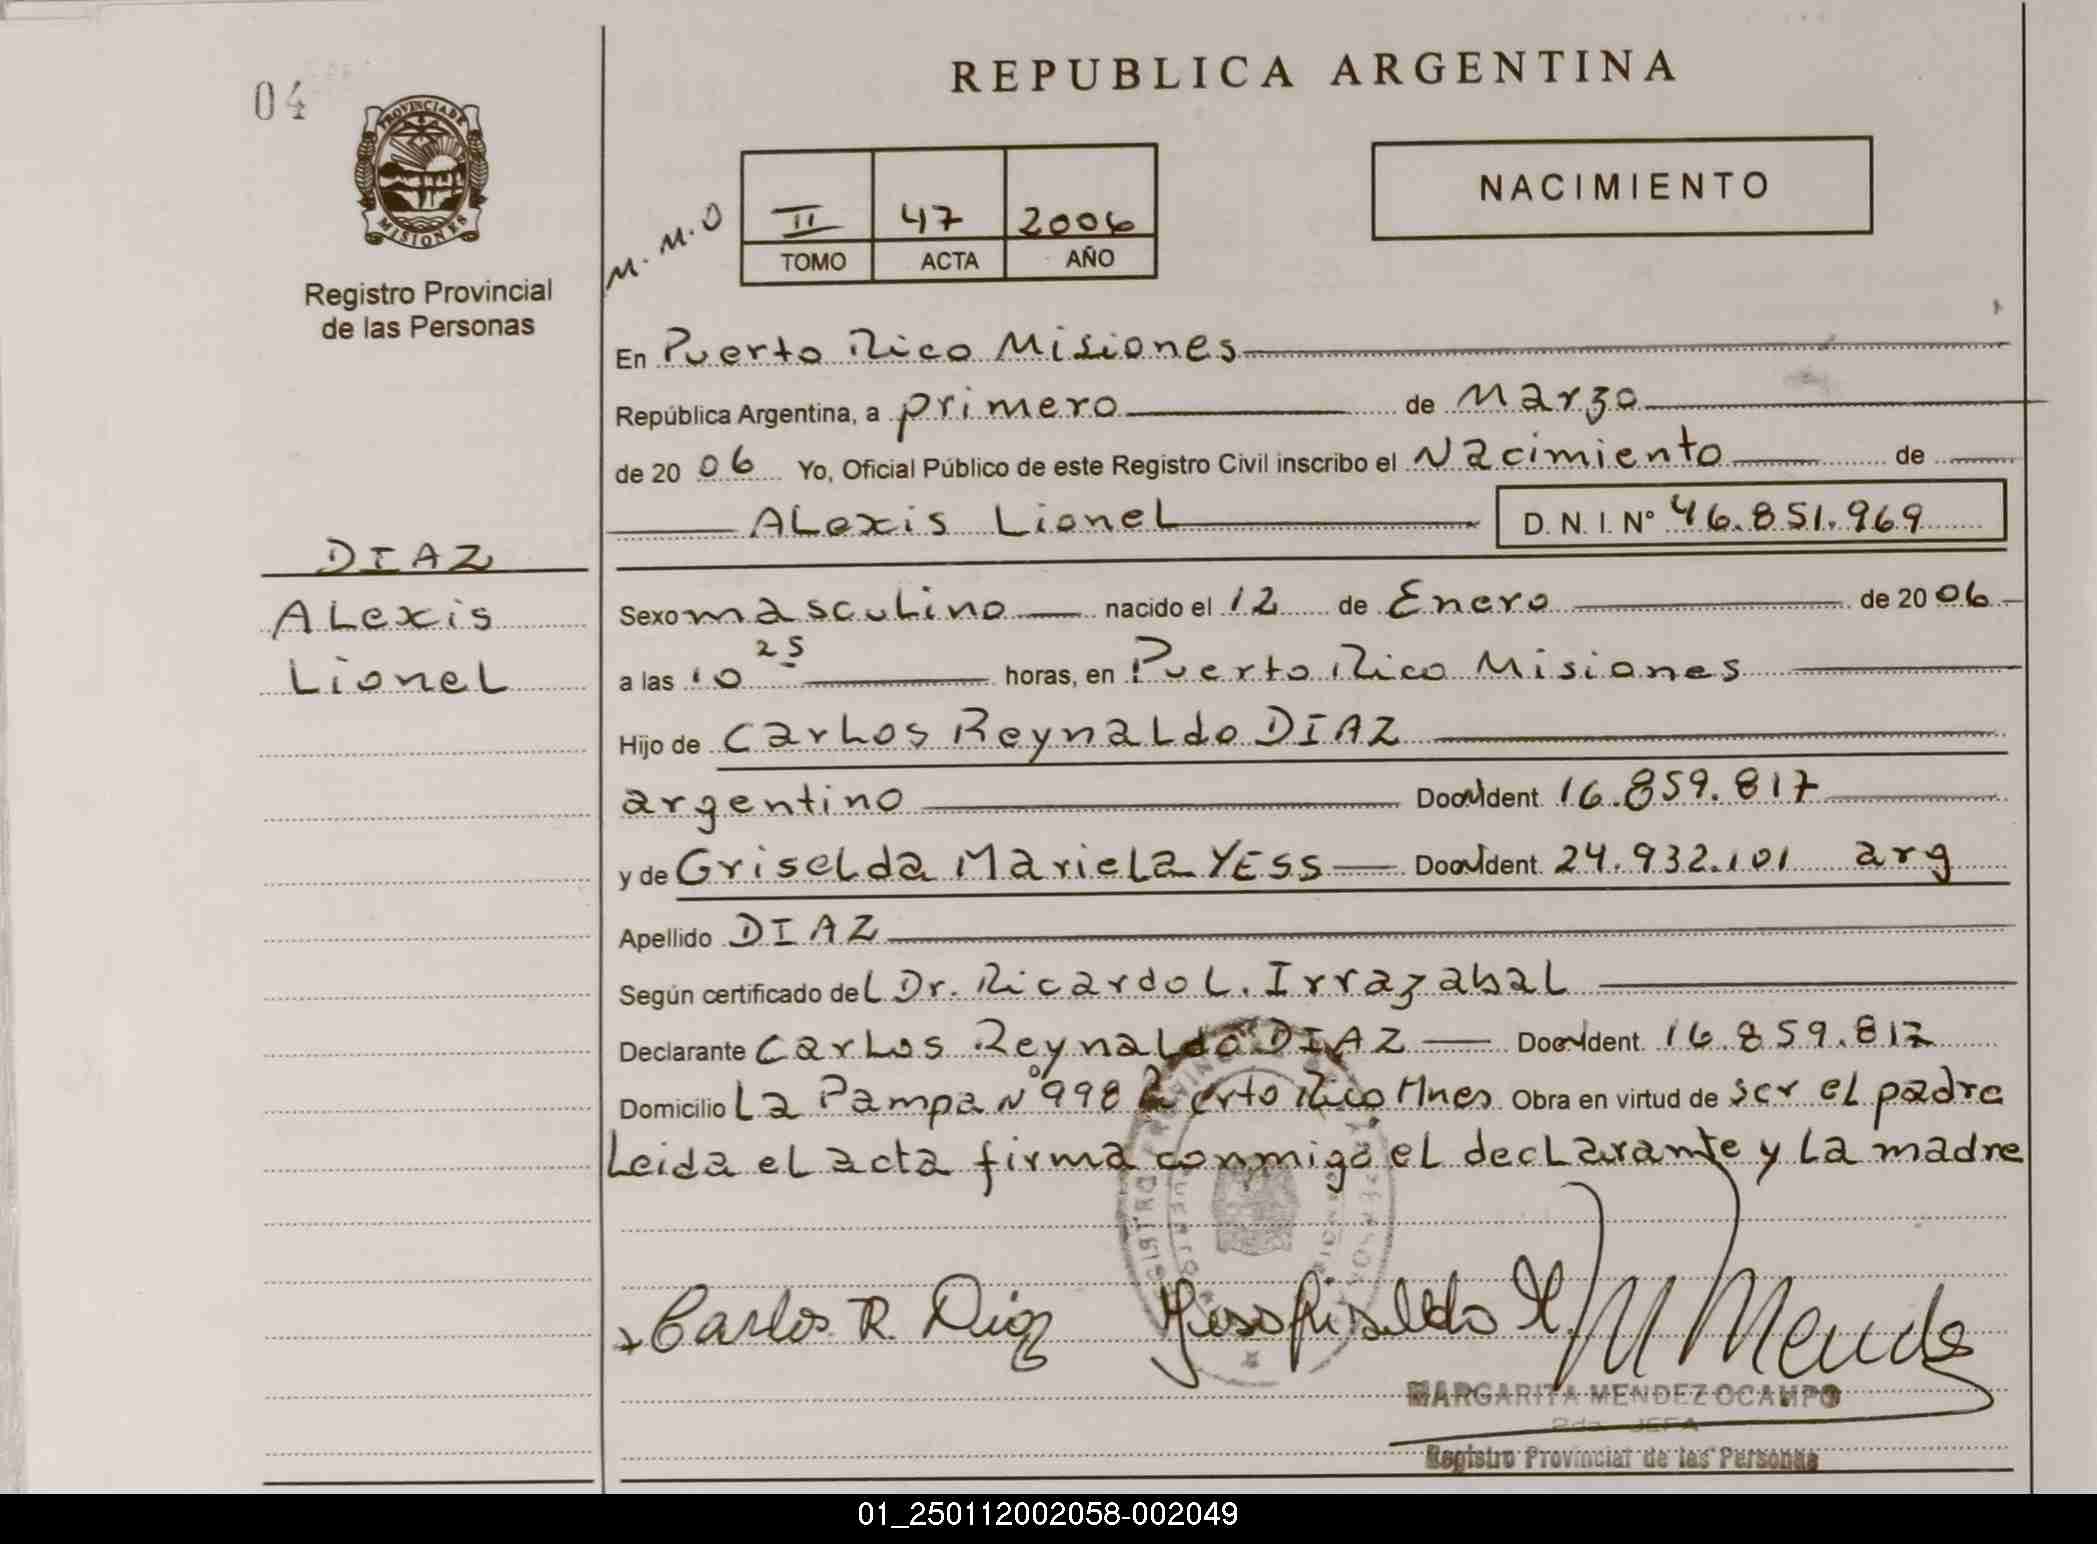 04
PROVINCIA DE
MISIONES
Registro Provincial
de las Personas
DIAZ
ALexis
LioneL
REPUBLICA ARGENTINA
NACIMIENTO
M.M.O
II 47 2006
TOMO ACTA AÑO
En Puerto Rico Misiones
República Argentina, a primero de Marzo
de 20 06 Yo, Oficial Público de este Registro Civil inscribo el Nacimiento de
ALexis LioneL D. N. I. Nº 46.851.969
Sexo mascuLino nacido el 12 de Enero de 20 06
a las 10 25 horas, en Puerto Rico Misiones
Hijo de CarLos ReynaLdo DIAZ
argentino Doc Ident. 16.859.817
y de GriseLda MarieLa YESS Doc Ident. 24.932.101 arg
Apellido DIAZ
Según certificado deL Dr. Ricardo L. IrrazabaL
Declarante CarLos ReynaLdo DIAZ Doc Ident. 16.859.817
Domicilio La Pampa Nº 998 Puerto Rico Mnes Obra en virtud de ser eL padre
Leida eL acta firma conmigo eL decLarante y La madre
Carlos R. Diaz
MARGARITA MENDEZ OCAMPO
2da. JEFA
Registro Provincial de las Personas
01_250112002058-002049